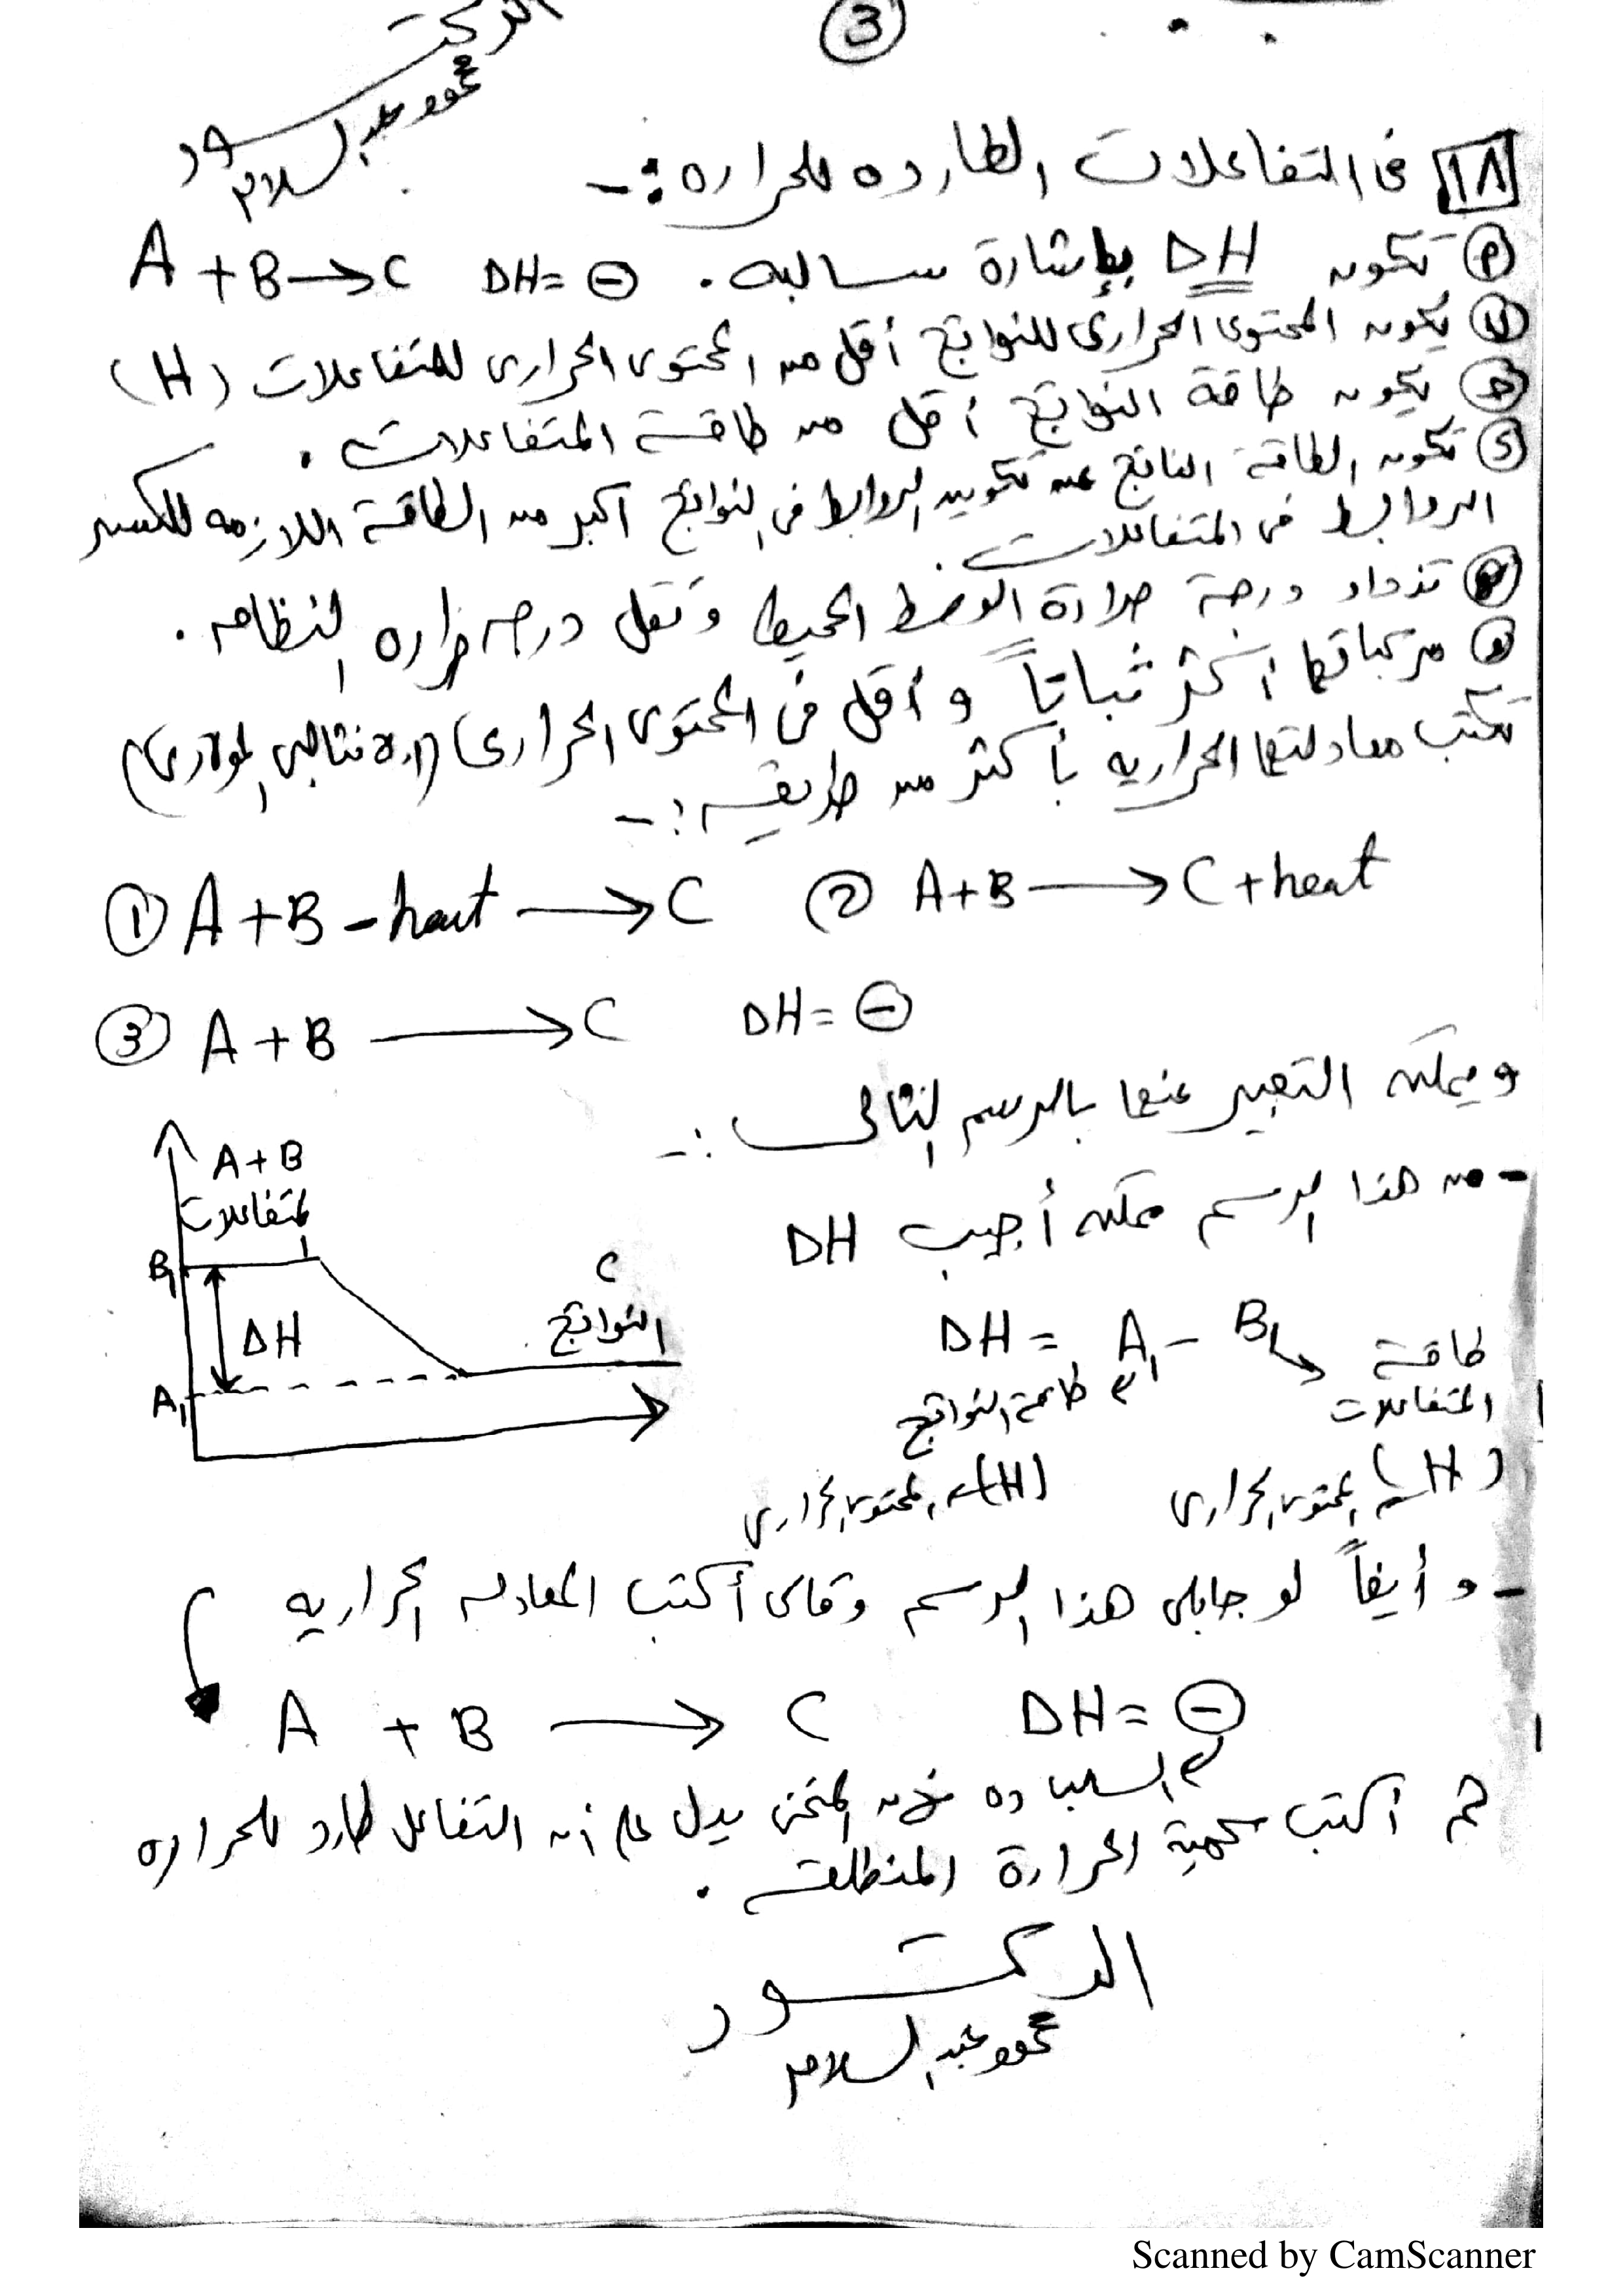 3
الدكتور
محمود عبد السلام
١٨ فى التفاعلات الطارده للحراره :-
أ تكون DH بإشارة سالبه . A + B → C DH = ⊖
ب يكون المحتوى الحرارى للنواتج أقل من المحتوى الحرارى للمتفاعلات (H)
ج يكون طاقة النواتج أقل من طاقة المتفاعلات .
د تكون الطاقة الناتج عن تكوين الروابط فى النواتج أكبر من الطاقة اللازمه للكسر
الروابط فى المتفاعلات .
تزداد درجة حرارة الوسط المحيط وتقل درجه حراره النظام .
مركباتها أكثر ثباتاً و أقل فى المحتوى الحرارى (الانثالبى المولارى)
تكتب معادلتها الحراريه بأكثر من طريقه :-
① A + B - heat → C ② A + B → C + heat
③ A + B → C DH = ⊖
ويمكن التعبير عنها بالرسم التالى :-
A + B
المتفاعلات
- من هذا الرسم ممكن أجيب DH
B₁
ΔH
C
النواتج
A₁
DH = A₁ - B₁ → طاقة
المتفاعلات
طاقة النواتج
(H) المحتوى الحرارى
(H) المحتوى الحرارى
- و أيضاً لو جابلى هذا الرسم وقالى أكتب المعادله الحراريه
A + B → C DH = ⊖
السلب ده لأن المنحنى يدل على أن التفاعل طارد للحراره
ثم أكتب كمية الحرارة المنطلقه .
الدكتور
محمود عبد السلام
Scanned by CamScanner